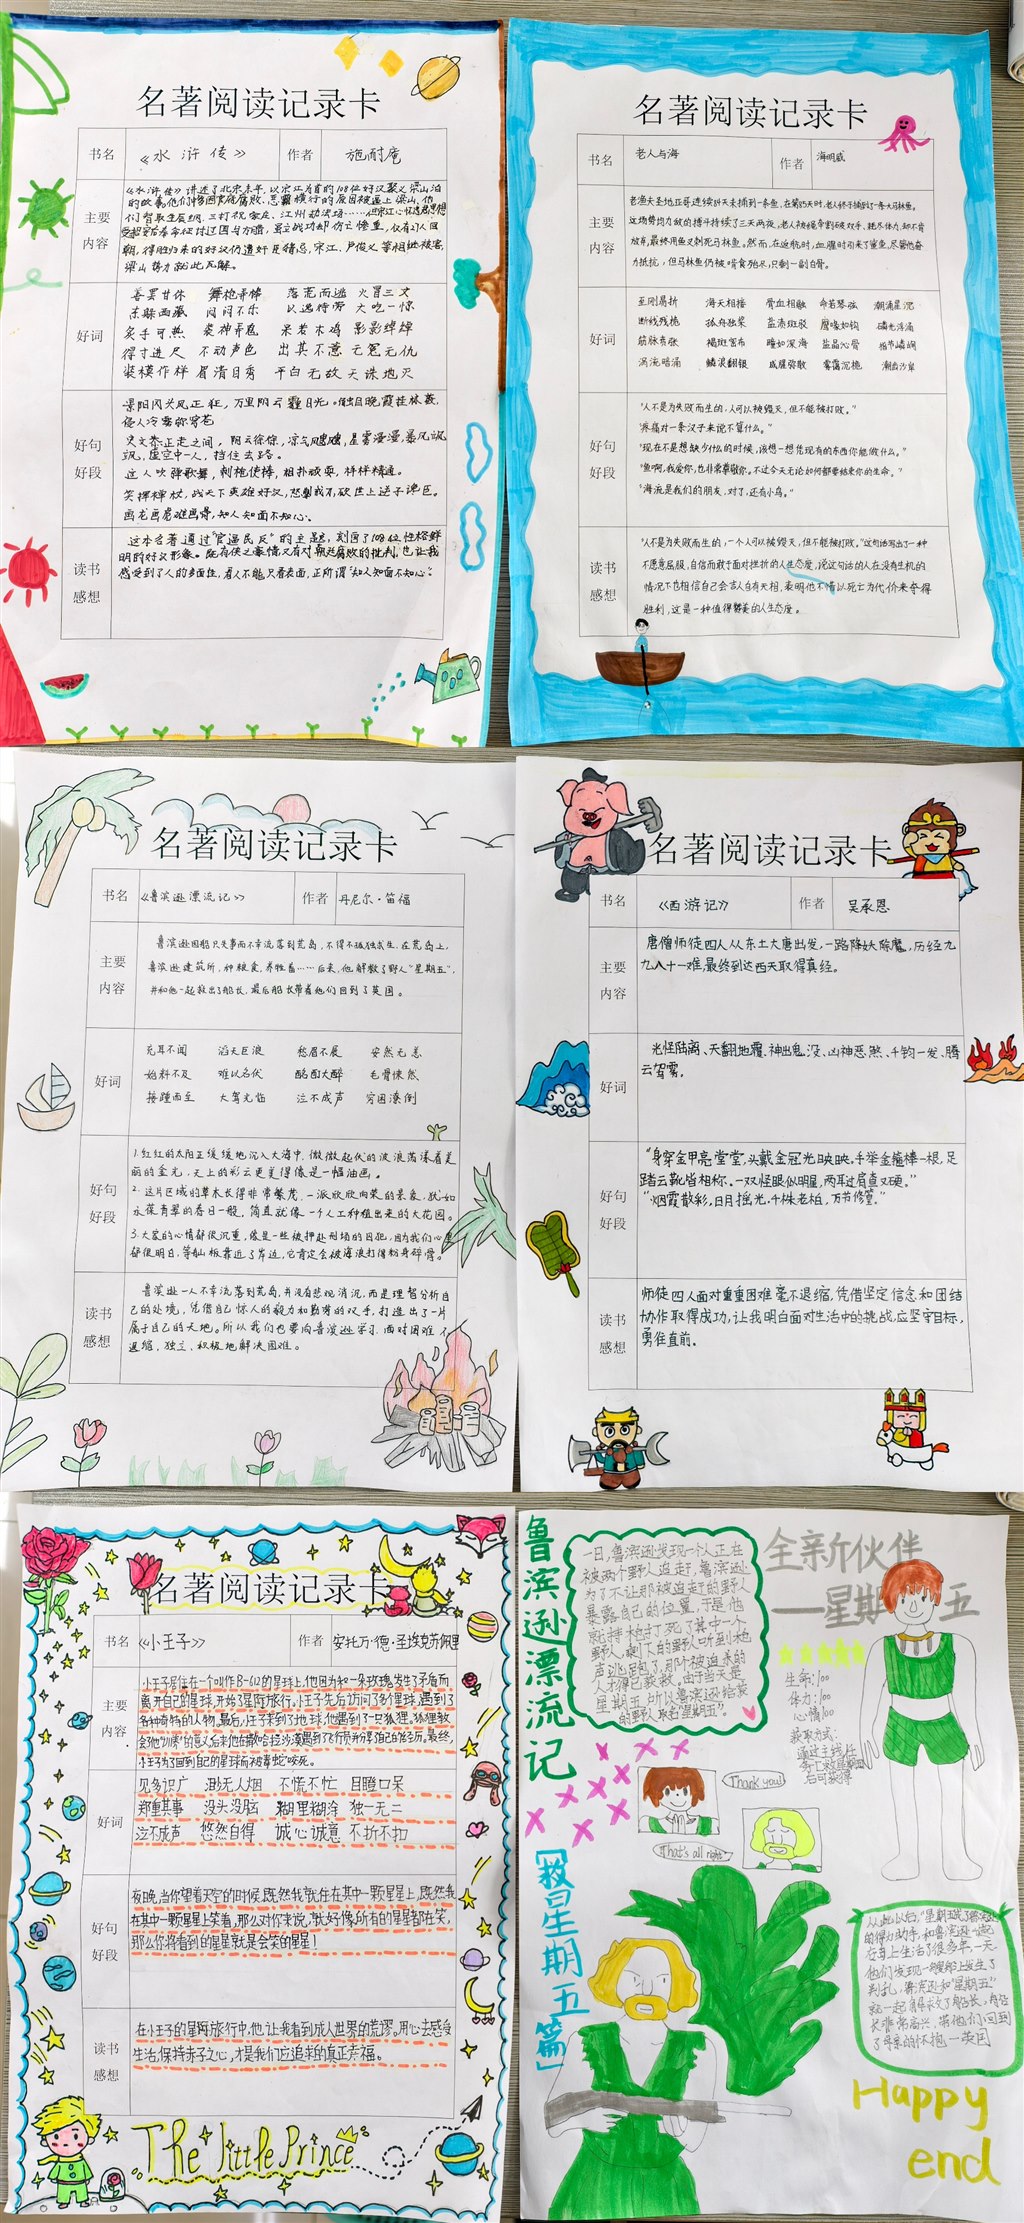 名著阅读记录卡
书名 《水浒传》 作者 施耐庵
主要内容
《水浒传》讲述了北宋末年,以宋江为首的108位好汉聚义梁山泊
的故事,他们因官府腐败、恶霸横行的原因被逼上梁山,他
们智取生辰纲、三打祝家庄、江州劫法场……但宋江心怀忠君思想
朝,得胜归来的好汉仍遭奸臣陷害,宋江、卢俊义等相继被害,
梁山势力就此瓦解。
好词
善罢甘休 舞枪弄棒 落荒而逃 火冒三丈
东躲西藏 闷闷不乐 以逸待劳 大吃一惊
炙手可热 装神弄鬼 呆若木鸡 影影绰绰
得寸进尺 不动声色 出其不意 无冤无仇
装模作样 眉清目秀 平白无故 天诛地灭
好句好段
景阳冈头风正狂,万里阴云霾日光。触目晚霞挂林薮,
侵人冷雾弥穹苍
这人吹弹歌舞,刺枪使棒,相扑顽耍,样样精通。
画龙画虎难画骨,知人知面不知心。
读书感想
这本名著通过“官逼民反”的主题,刻画了108位性格鲜
明的好汉形象。既有侠义豪情又有对朝廷腐败的批判,也让我
感受到了人的多面性,看人不能只看表面,正所谓“知人知面不知心”。
名著阅读记录卡
书名 老人与海 作者 海明威
主要内容
老渔夫圣地亚哥连续84天未捕到一条鱼,在第85天时,老人终于捕到了一条大马林鱼。
这场势均力敌的搏斗持续了三天两夜,老人被绳牵割破双手,耗尽体力,却不肯
放弃,最终用鱼叉刺死马林鱼。然而,在返航时,血腥味引来了鲨鱼,尽管他奋
力抵抗,但马林鱼仍被啃食殆尽,只剩一副白骨。
好词
至刚易折 海天相接 骨血相融 命若琴弦 潮涌星沉
断线残桅 孤舟独桨 盐渍斑驳 鹰喙如钩 磷光浮涌
筋脉贲张 褐斑密布 瞳如深海 盐晶沁骨 指节嶙峋
涡流暗涌 鳞浪翻银 咸腥弥散 雾霭沉桅 潮齿汐岸
好句好段
“人不是为失败而生的,人可以被毁灭,但不能被打败。”
“疼痛对一条汉子来说不算什么。”
“现在不是想缺少什么的时候,该想一想凭现有的东西你能做什么。”
“鱼啊,我爱你,也非常尊敬你。不过今天无论如何都要结束你的生命。”
“海流是我们的朋友,对了,还有小鸟。”
读书感想
“人不是为失败而生的,一个人可以被毁灭,但不能被打败。”这句话写出了一种
不愿意屈服,自信而敢于面对挫折的人生态度,说这句话的人在没有生机的
情况下也相信自己会吉人自有天相,表明他不惜以死亡为代价来夺得
胜利,这是一种值得赞美的人生态度。
名著阅读记录卡
书名 《鲁滨逊漂流记》 作者 丹尼尔·笛福
主要内容
鲁滨逊因船只失事而不幸流落到荒岛,不得不孤独求生。在荒岛上,
鲁滨逊建筑所,种粮食,养牲畜……后来,他解救了野人“星期五”,
并和他一起救出了船长,最后船长带着他们回到了英国。
好词
充耳不闻 滔天巨浪 愁眉不展 安然无恙
始料不及 难以名状 酩酊大醉 毛骨悚然
接踵而至 大驾光临 泣不成声 穷困潦倒
好句好段
1.红红的太阳正缓缓地沉入大海中,微微起伏的波浪荡漾着美
丽的金光,天上的彩云更美得像是一幅油画。
2.这片区域的草木长得非常繁茂,一派欣欣向荣的景象,犹如
永葆青翠的春日一般,简直就像一个人工种植出来的大花园。
3.大家的心情都很沉重,像是一些被押赴刑场的囚犯,因为我们心里
都很明白,等舢板靠近了岸边,它肯定会被海浪打得粉身碎骨。
读书感想
鲁滨逊一人不幸流落到荒岛,并没有悲观消沉,而是理智分析自
己的处境,凭借自己惊人的毅力和勤劳的双手,打造出了一片
属于自己的天地。所以我们也要向鲁滨逊学习,面对困难不
退缩,独立、积极地解决困难。
名著阅读记录卡
书名 《西游记》 作者 吴承恩
主要内容
唐僧师徒四人从东土大唐出发,一路降妖除魔,历经九
九八十一难,最终到达西天取得真经。
好词
光怪陆离、天翻地覆、神出鬼没、凶神恶煞、千钧一发、腾
云驾雾。
好句好段
“身穿金甲亮堂堂,头戴金冠光映映。手举金箍棒一根,足
踏云靴皆相称。一双怪眼似明星,两耳过肩查又硬。”
“烟霞散彩,日月摇光。千株老柏,万节修篁。”
读书感想
师徒四人面对重重困难毫不退缩,凭借坚定信念和团结
协作取得成功,让我明白面对生活中的挑战,应坚守目标,
勇往直前。
名著阅读记录卡
书名 《小王子》 作者 安托万·德·圣埃克苏佩里
主要内容
小王子居住在一个叫作B-612的星球上,他因为和一朵玫瑰发生了矛盾而
离开自己的星球,开始了星际旅行。小王子先后访问了多个星球,遇到了
各种奇特的人物。最后,小王子来到了地球,他遇到了一只狐狸,狐狸教
会他“驯养”的意义,后来他在撒哈拉沙漠遇到了飞行员并分享自己的经历。最终,
小王子为了回到自己的星球而被毒蛇咬死。
好词
见多识广 渺无人烟 不慌不忙 目瞪口呆
郑重其事 没头没脑 糊里糊涂 独一无二
泣不成声 悠然自得 诚心诚意 不折不扣
好句好段
夜晚,当你望着天空的时候,既然我就住在其中一颗星星上,既然我
在其中一颗星星上笑着,那么对你来说,就好像所有的星星都在笑,
那么你将看到的星星就是会笑的星星!
读书感想
在小王子的星际旅行中,他让我看到成人世界的荒谬,用心去感受
生活,保持赤子之心,才是我们应追求的真正幸福。
The little Prince
鲁滨逊漂流记
【救星期五篇】
一日,鲁滨逊发现一个人正在
被两个野人追赶,鲁滨逊
为了不让那被追赶的野人
暴露自己的位置,于是他
就持木枪打死了其中一个
野人,剩下的野人听到枪
声逃跑了,那个被追来的
人才得已获救。由于当天是
星期五,所以鲁滨逊给救
的野人取名“星期五”。
全新伙伴
——星期五
生命:100
体力:100
心情:100
获取方式:
通过主线任
后可获得
Thank you!
That's all right
从此以后,“星期五”成了鲁滨逊
的得力助手,和鲁滨逊一起
在岛上生活了很多年,一天
他们发现一艘船上发生了
判乱,鲁滨逊和“星期五”
长非常高兴,带他们回到
了母亲的怀抱—英国
Happy
end